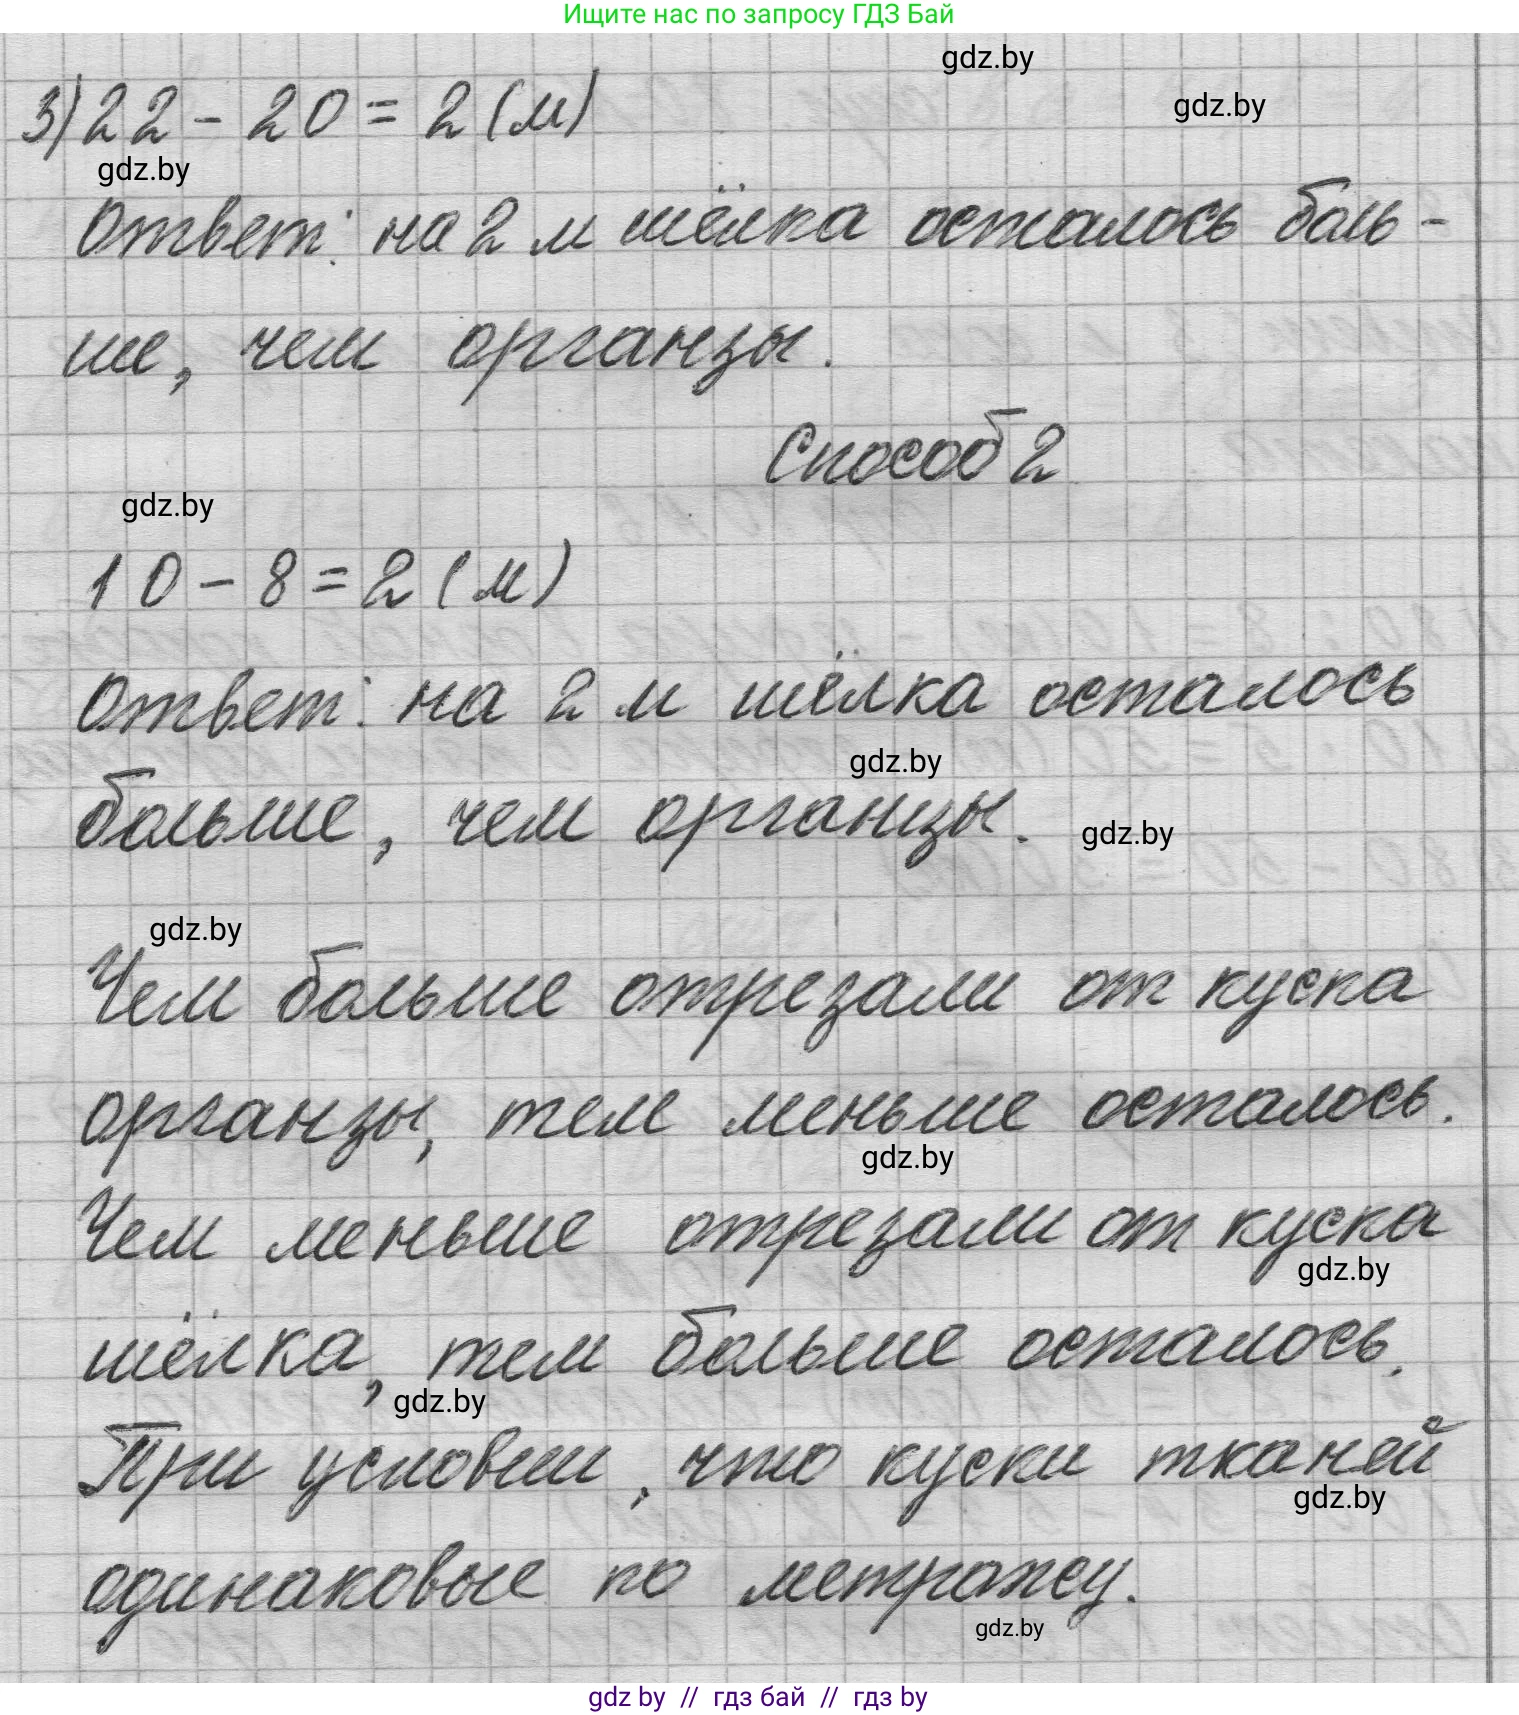 Ищите нас по запросу ГДЗ Бай
gdz.by
gdz.by
3) 22 - 20 = 2 (м)
gdz.by
Ответ: на 2 м шёлка осталось боль-
ше, чем органзы.
Способ 2
gdz.by
10 - 8 = 2 (м)
Ответ: на 2 м шёлка осталось
gdz.by
больше, чем органзы.
gdz.by
gdz.by
Чем больше отрезали от куска
органзы, тем меньше осталось.
gdz.by
Чем меньше отрезали от куска
gdz.by
шёлка, тем больше осталось.
gdz.by
При условии, что куски тканей
gdz.by
одинаковые по метражу.
gdz.by
gdz by // гдз бай // гдз by